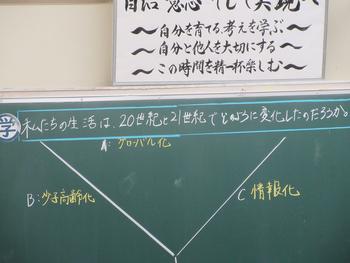 自信 意志 そして実現へ
〜自分を育てる考えを学ぶ〜
〜自分と他人を大切にする〜
〜この時間を精一杯楽しむ〜
学 私たちの生活は、20世紀と21世紀でどのように変化したのだろうか。
A:グローバル化
B:少子高齢化
C 情報化